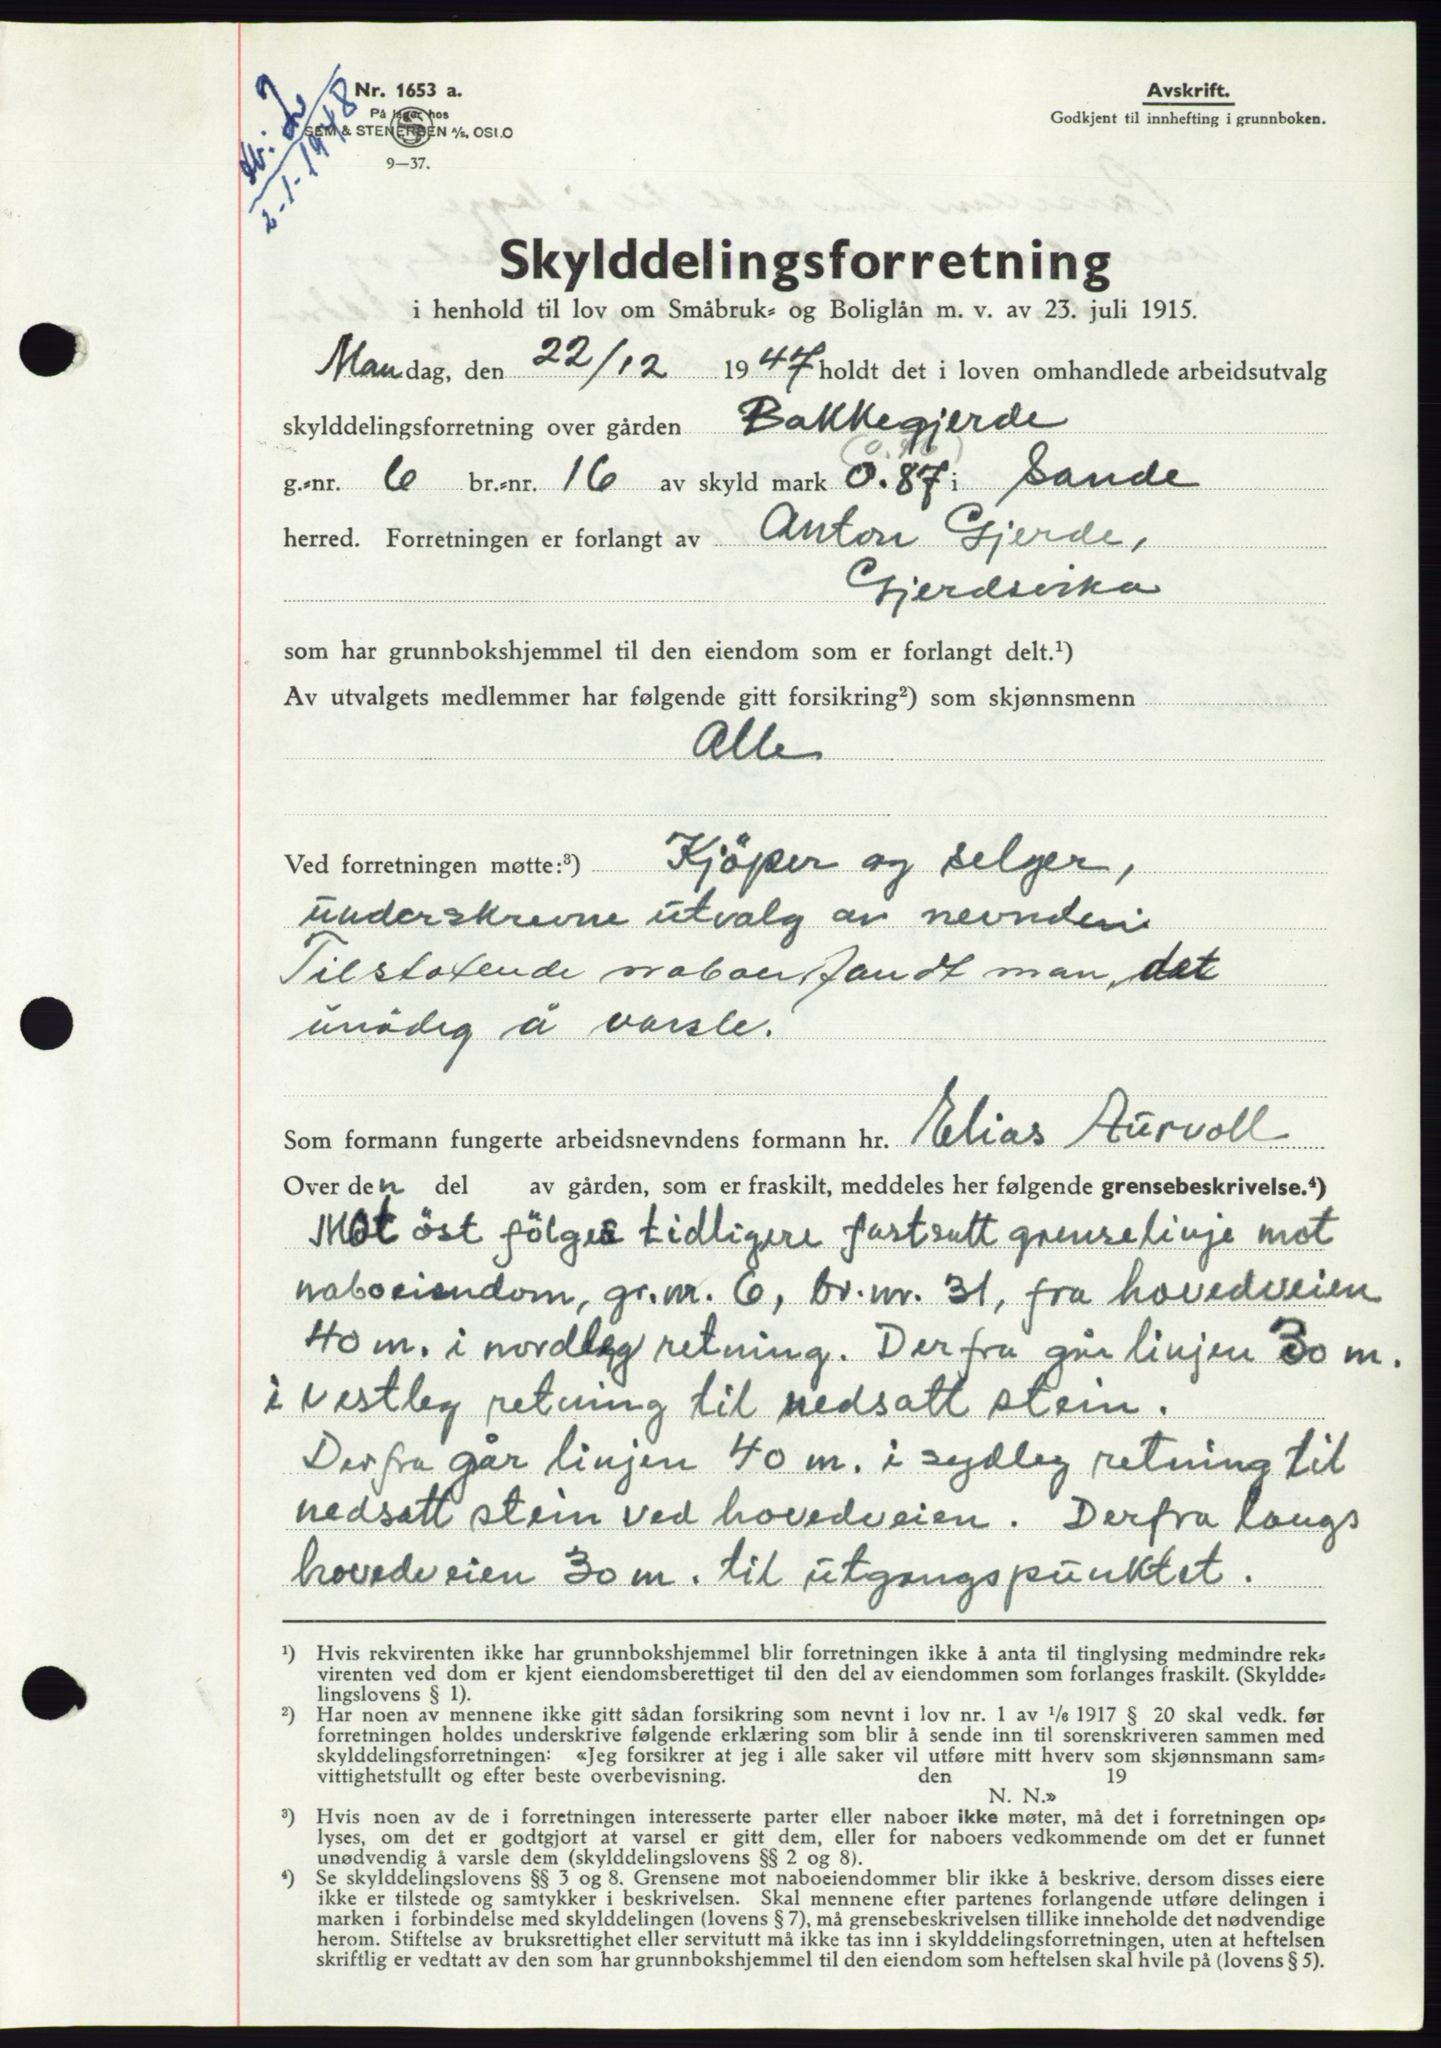 Nr. 1653 a.
På lager hos
SEM & STENERSEN A/S, OSLO
9—37.
2
2-1-1948
Avskrift.
Godkjent til innhefting i grunnboken.
Skylddelingsforretning
i henhold til lov om Småbruk- og Boliglån m. v. av 23. juli 1915.
Mandag, den 22/12 1947 holdt det i loven omhandlede arbeidsutvalg
skylddelingsforretning over gården Bakkegjerde
g.-nr. 6 br.-nr. 16 av skyld mark 0.87 i Sande
herred. Forretningen er forlangt av Anton Gjerde,
Gjerdsvika
som har grunnbokshjemmel til den eiendom som er forlangt delt.¹)
Av utvalgets medlemmer har følgende gitt forsikring²) som skjønnsmenn
Alle
Ved forretningen møtte:³) Kjöper og selger,
underskrevne utvalg av nevnden.
Tilstøtende naboer fandt man det
unödig å varsle.
Som formann fungerte arbeidsnevndens formann hr. Elias Aurvoll
Over den del av gården, som er fraskilt, meddeles her følgende grensebeskrivelse.⁴)
Mot öst fölges tidligere fastsatt grenselinje mot
naboeiendom, gr.nr. 6, br.nr. 31, fra hovedveien
40 m. i nordleg retning. Derfra går linjen 30 m.
i vestleg retning til nedsatt stein.
Derfra går linjen 40 m. i sydleg retning til
nedsatt stein ved hovedveien. Derfra langs
hovedveien 30 m. til utgangspunktet.
¹) Hvis rekvirenten ikke har grunnbokshjemmel blir forretningen ikke å anta til tinglysing medmindre rek-
virenten ved dom er kjent eiendomsberettiget til den del av eiendommen som forlanges fraskilt. (Skyldde-
lingslovens § 1).
²) Har noen av mennene ikke gitt sådan forsikring som nevnt i lov nr. 1 av ¹/₆ 1917 § 20 skal vedk. før
forretningen holdes underskrive følgende erklæring som blir å sende inn til sorenskriveren sammen med
skylddelingsforretningen: «Jeg forsikrer at jeg i alle saker vil utføre mitt hverv som skjønnsmann sam-
vittighetsfullt og efter beste overbevisning. den 19
N. N.»
³) Hvis noen av de i forretningen interesserte parter eller naboer ikke møter, må det i forretningen op-
lyses, om det er godtgjort at varsel er gitt dem, eller for naboers vedkommende om det er funnet
unødvendig å varsle dem (skylddelingslovens §§ 2 og 8).
⁴) Se skylddelingslovens §§ 3 og 8. Grensene mot naboeiendommer blir ikke å beskrive, dersom disses eiere
ikke er tilstede og samtykker i beskrivelsen. Skal mennene efter partenes forlangende utføre delingen i
marken i forbindelse med skylddelingen (lovens § 7), må grensebeskrivelsen tillike inneholde det nødvendige
herom. Stiftelse av bruksrettighet eller servitutt må ikke tas inn i skylddelingsforretningen, uten at heftelsen
skriftlig er vedtatt av den som har grunnbokshjemmel til den eiendom som heftelsen skal hvile på (lovens § 5).